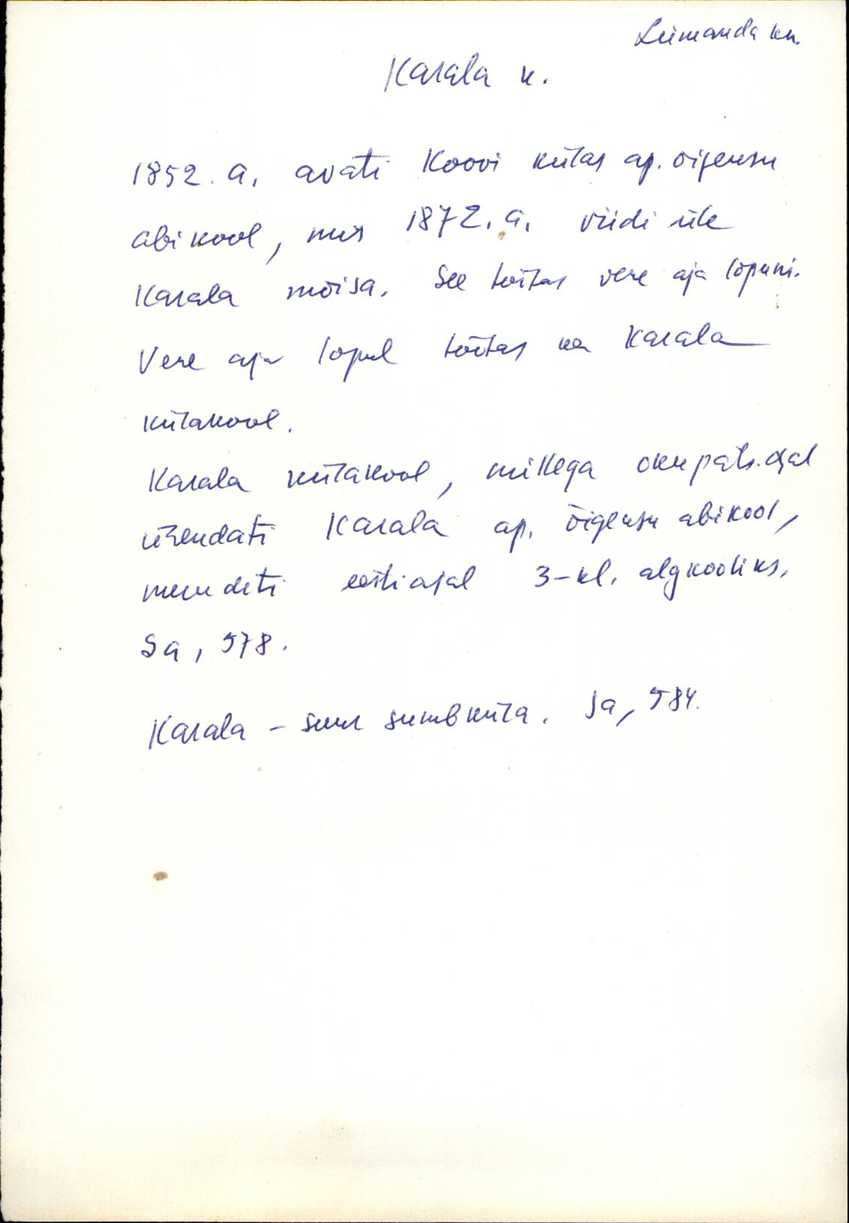 Leimanda kn.
Karala k.
1852. a. avati Koovi külas ap. õigeusu
abikool, mis 1872. a. viidi üle
Karala mõisa. See töötas vene aja lõpuni.
Vene aja lõpul töötas ka Karala
külakool.
Karala külakool, millega okupats. ajal
ühendati Karala ap. õigeusu abikool,
muudeti eesti ajal 3-kl. algkooliks.
Sa, 578.
Karala – suur sumbküla. Sa, 584.